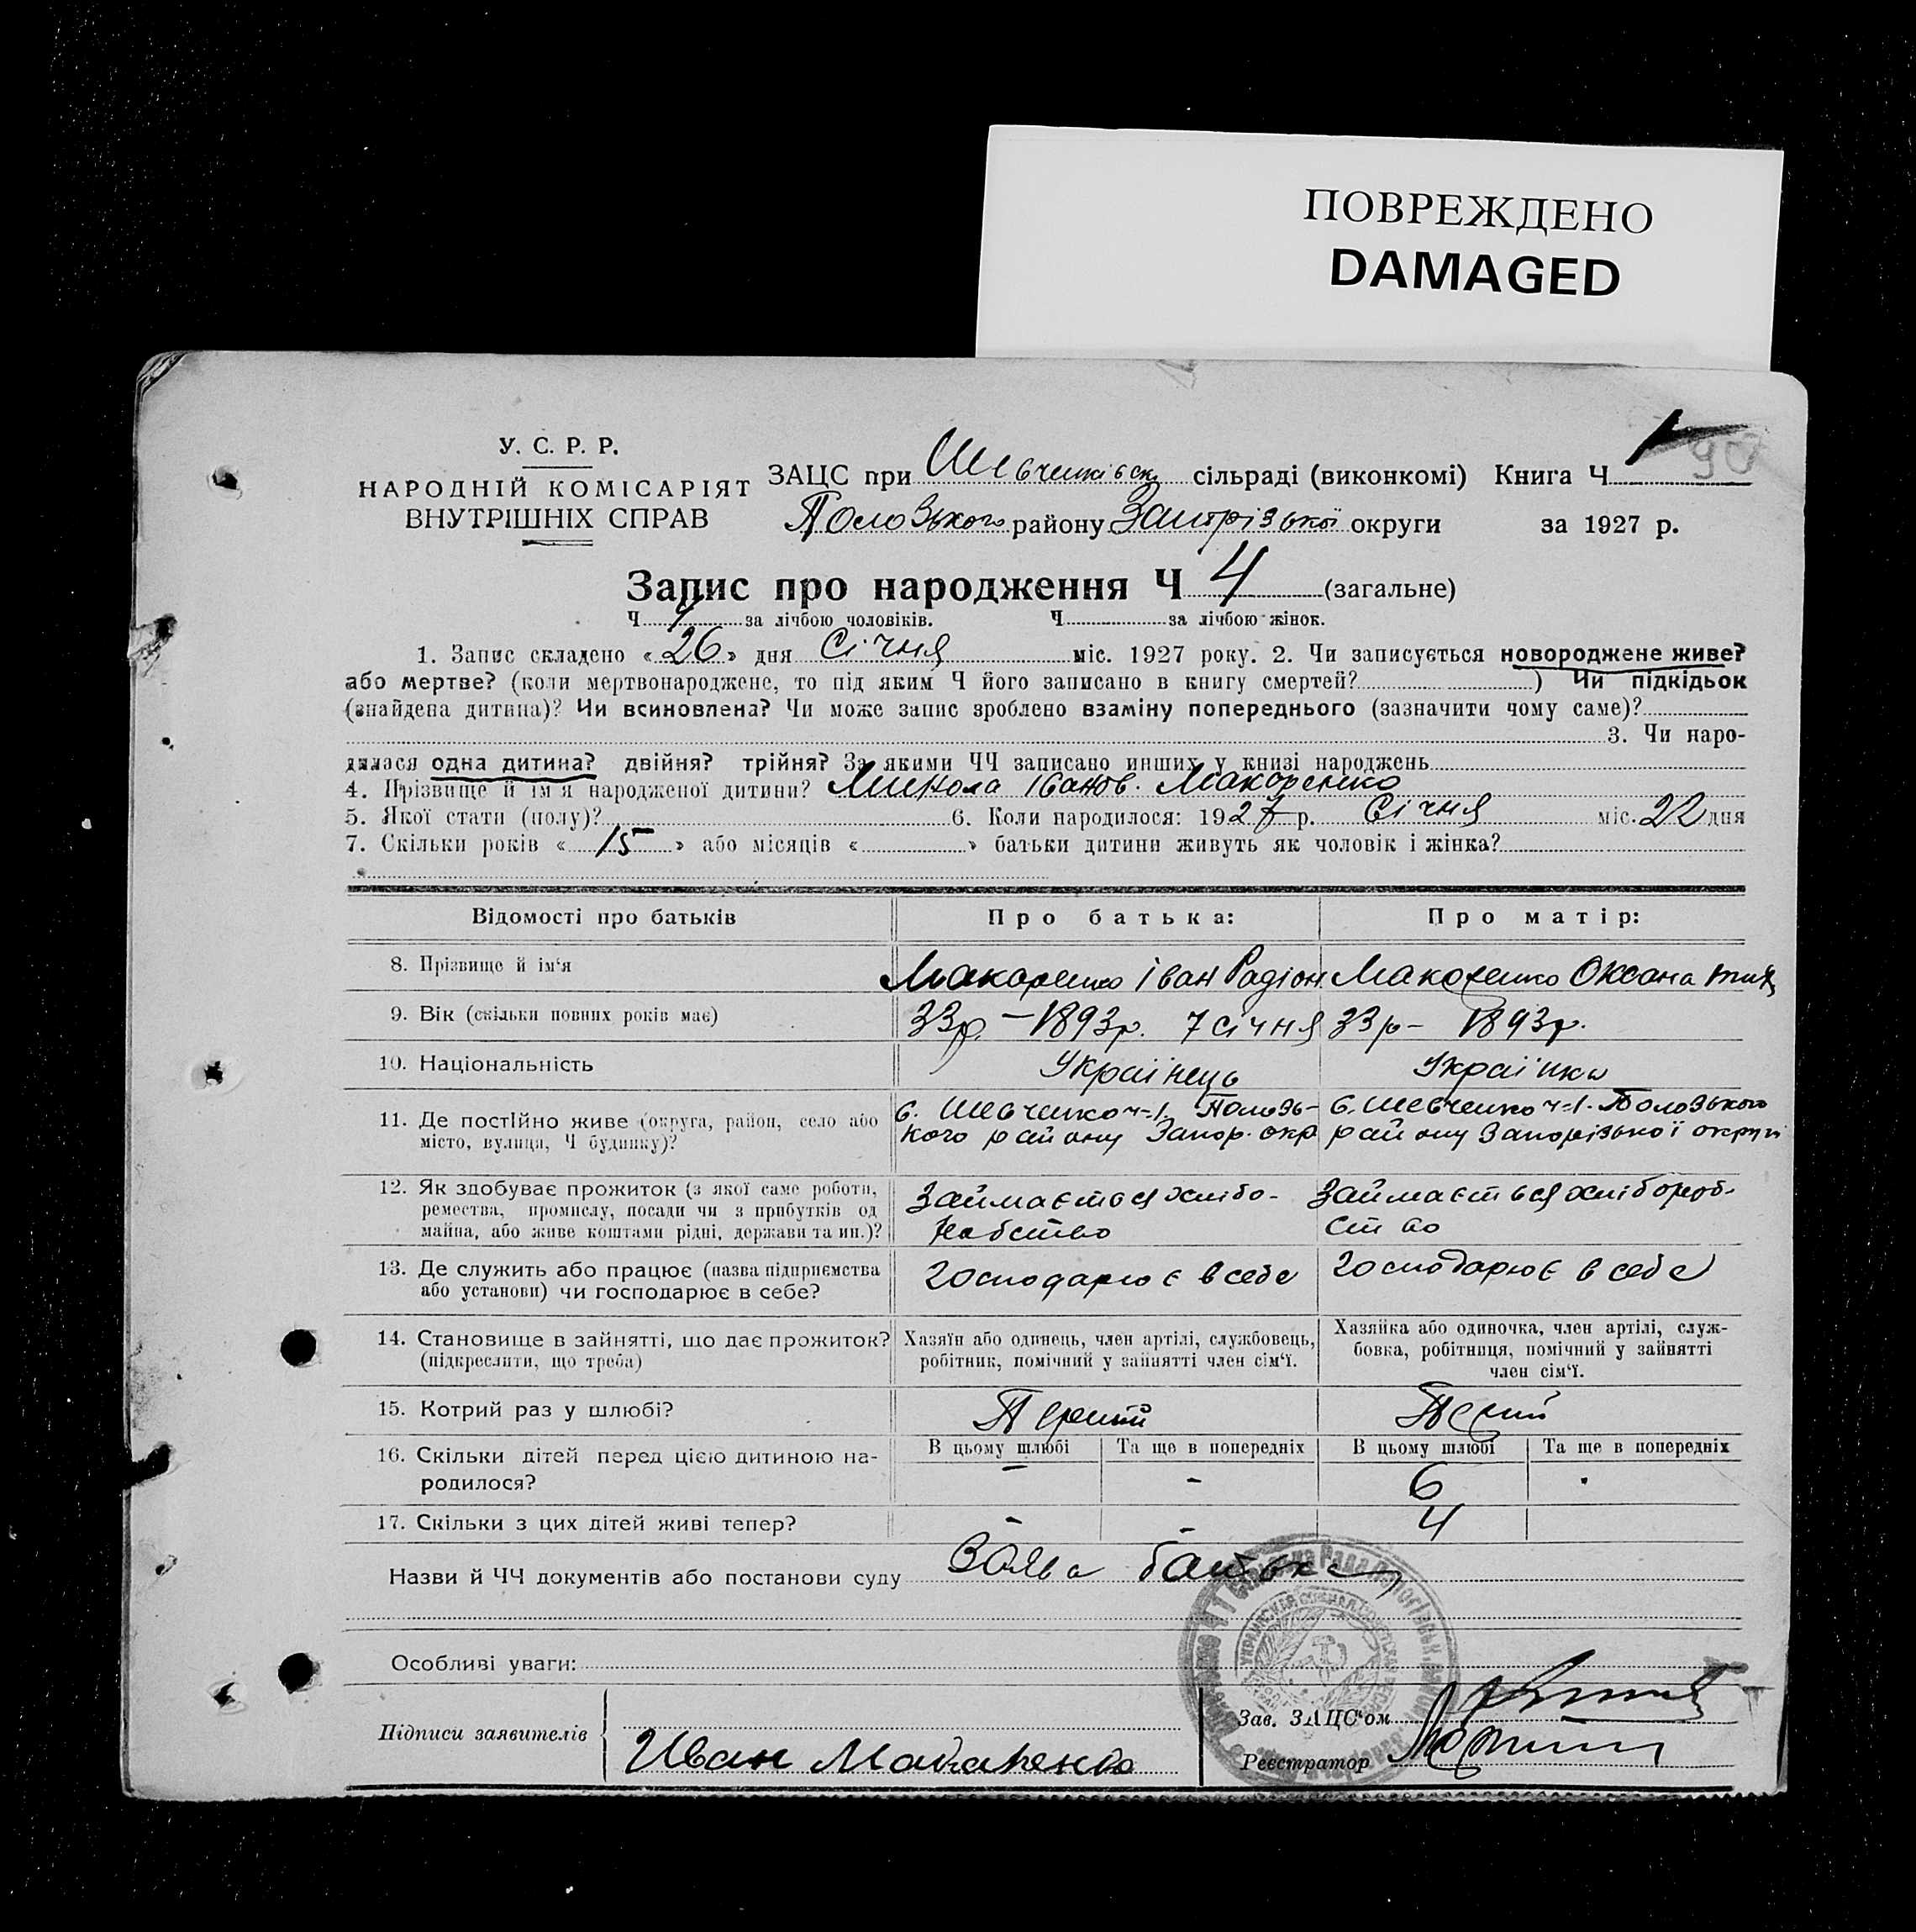 ПОВРЕЖДЕНО
DAMAGED
У. С. Р. Р.
НАРОДНІЙ КОМІСАРІЯТ
ВНУТРІШНІХ СПРАВ
ЗАЦС при Шевченківск сільраді (виконкомі) Книга Ч 1 90
Пологзького району Запорізької округи за 1927 р.
Запис про народження Ч 4 (загальне)
Ч 4 за лічбою чоловіків. Ч за лічбою жінок.
1. Запис складено «26» дня Січня міс. 1927 року. 2. Чи записується новороджене живе?
або мертве? (коли мертвонароджене, то під яким Ч його записано в книгу смертей? ) Чи підкідьок
(знайдена дитина)? Чи всиновлена? Чи може запис зроблено взаміну попереднього (зазначити чому саме)?
3. Чи наро-
дилася одна дитина? двійня? трійня? За якими ЧЧ записано инших у книзі народжень
4. Прізвище й ім'я народженої дитини? Микола Іванов. Макаренко
5. Якої стати (полу)? 6. Коли народилося: 1927 р. Січня міс. 22 дня
7. Скільки років « 15 » або місяців « » батьки дитини живуть як чоловік і жінка?
Відомості про батьків Про батька: Про матір:
8. Прізвище й ім'я Макаренко Іван Радіон Макаренко Оксана
9. Вік (скільки повних років має) 33р. – 1893р. 7 січня 33р – 1893р.
10. Національність Українець Українка
11. Де постійно живе (округа, район, село або
місто, вулиця, Ч будинку)?
с. Шевченко ч-1. Пологзь-
кого району Запор. окр
с. Шевченко ч-1. Пологзького
району Запорізької округи
12. Як здобуває прожиток (з якої саме роботи,
ремества, промислу, посади чи з прибутків од
майна, або живе коштами рідні, держави та ин.)?
Займається хлібо-
робство
Займається хлібороб-
ство
13. Де служить або працює (назва підприємства
або установи) чи господарює в себе?
Господарює в себе
Господарює в себе
14. Становище в зайнятті, що дає прожиток?
(підкреслити, що треба)
Хазяїн або одинець, член артілі, службовець,
робітник, помічний у зайнятті член сім'ї.
Хазяйка або одиночка, член артілі, служ-
бовка, робітниця, помічний у зайнятті
член сім'ї.
15. Котрий раз у шлюбі? Перший Перший
16. Скільки дітей перед цією дитиною на-
родилося?
В цьому шлюбі Та ще в попередніх В цьому шлюбі Та ще в попередніх
– - 6
17. Скільки з цих дітей живі тепер? - - 4
Назви й ЧЧ документів або постанови суду Заява батька
Особливі уваги:
Підписи заявителів Иван Макаренко
Зав. ЗАЦС'ом
Реєстратор